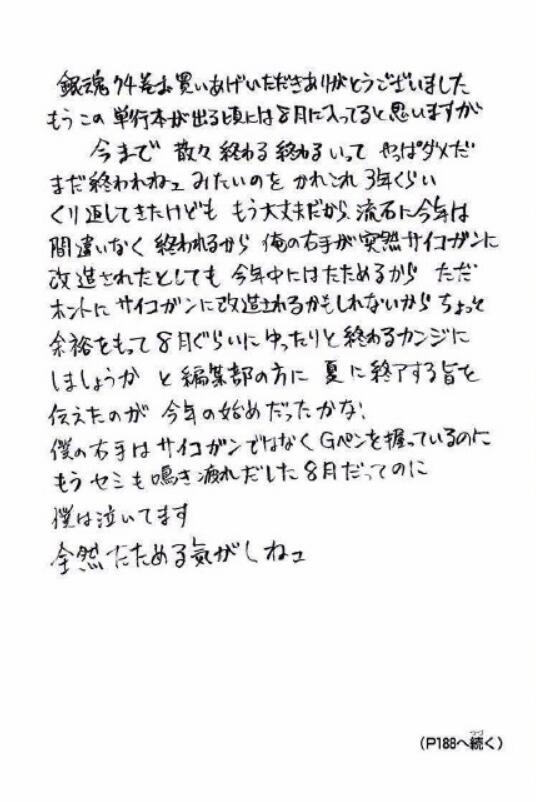 銀魂74巻お買いあげいただきありがとうございました
もうこの単行本が出る頃には8月に入ってると思いますが
今まで 散々終わる終わるいって やっぱダメだ
まだ終われねェ みたいのを かれこれ3年くらい
くり返してきたけども もう大丈夫だから、流石に今年は
間違いなく終われるから 俺の右手が突然サイコガンに
改造されたとしても 今年中にはたためるから ただ
ホントにサイコガンに改造されるかもしれないから ちょっと
余裕をもって8月ぐらいにゆったりと終わるカンジに
しましょうか と編集部の方に 夏に終了する旨を
伝えたのが 今年の始めだったかな!
僕の右手はサイコガンではなくGペンを握っているのに
もうセミも鳴き疲れだした8月だってのに
僕は泣いてます
全然たためる気がしねェ
(P188へ続く)